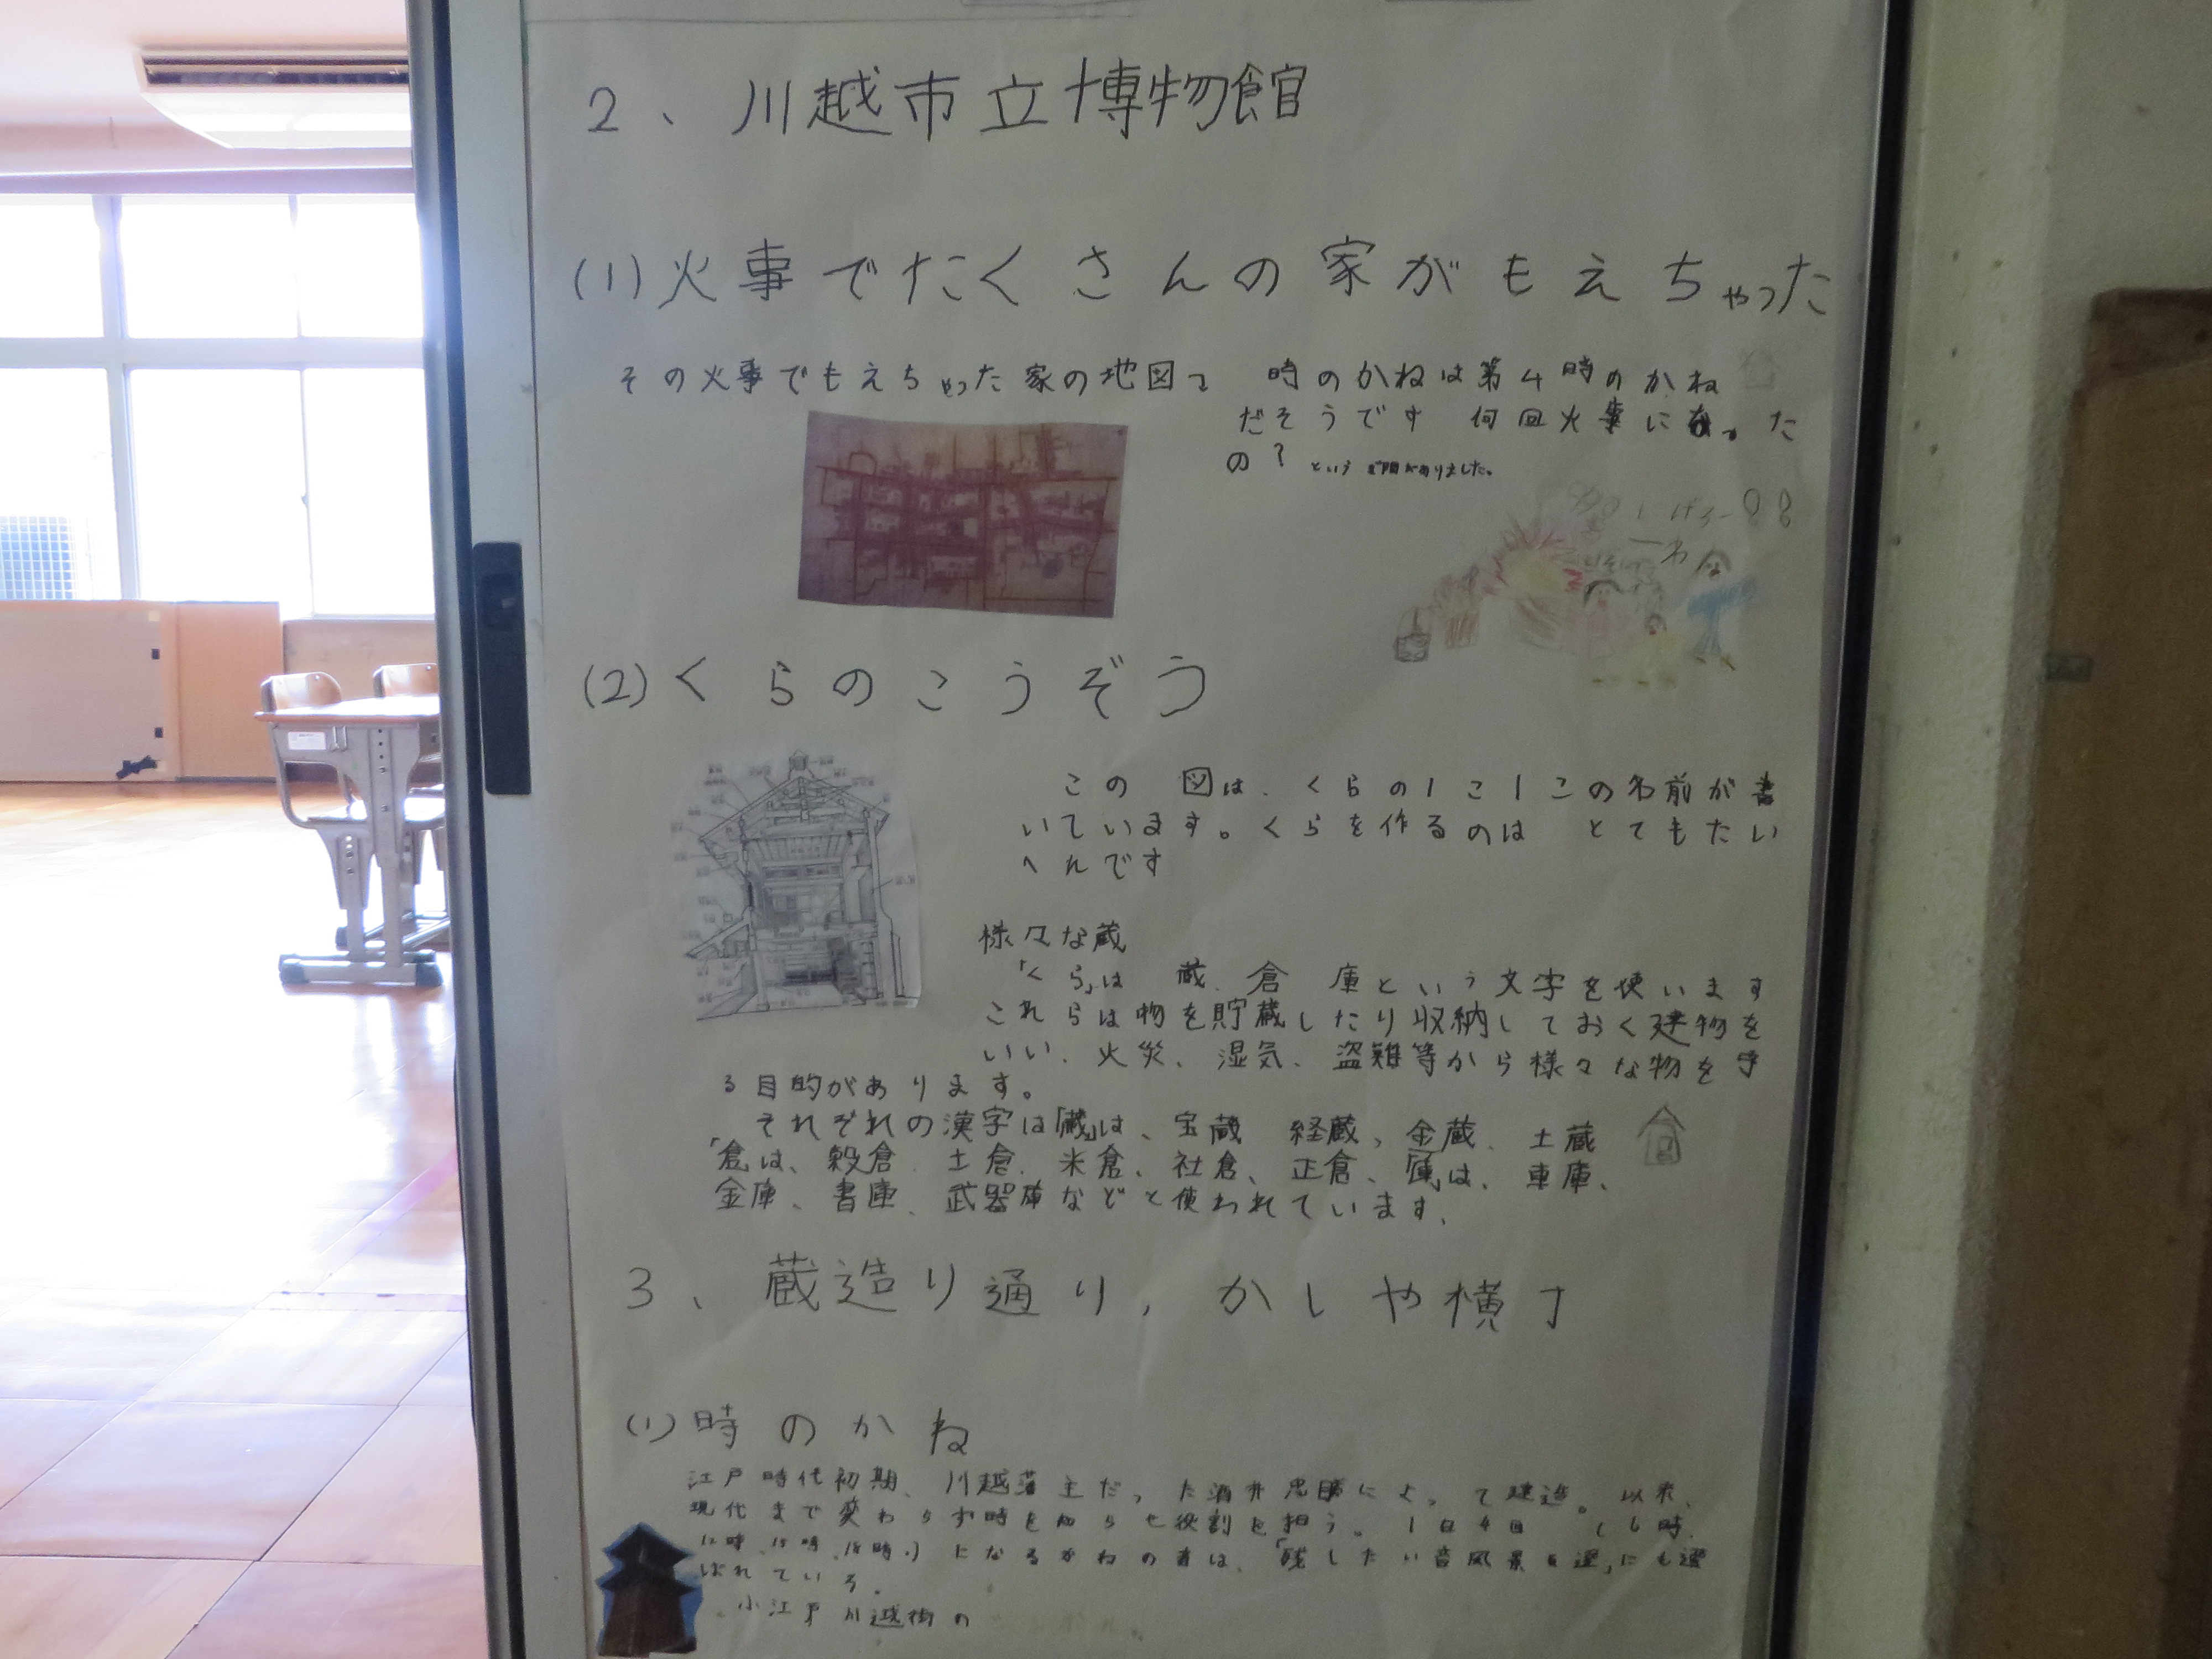 2、川越市立博物館
(1)火事でたくさんの家がもえちゃった
その火事でもえちゃった家の地図
時のかねは第4時のかね
だそうです 何回火事になった
の？という
(2)くらのこうぞう
この 図は、くらの1こ1この名前が書
いています。くらを作るのは とてもたい
へんです
様々な蔵
「くら」は 蔵、倉 庫という文字を使います
これらは物を貯蔵したり収納しておく建物を
いい、火災、湿気、盗難等から様々な物を守
る目的があります。
それぞれの漢字は「蔵」は、宝蔵 経蔵、金蔵、土蔵
「倉は、穀倉、土倉、米倉、社倉、正倉、「庫」は、車庫、
金庫、書庫、武器庫などと使われています、
3、蔵造り通り、かしや横丁
(1)時のかね
江戸時代初期、川越藩主だった酒井忠勝によって建造。以来、
現代まで変わらず時を知らせ役割を担う。1日4回 (6時、
12時、15時、18時、)になるかねの音は、「残したい音風景 選」にも選
ばれている。
小江戸川越街の